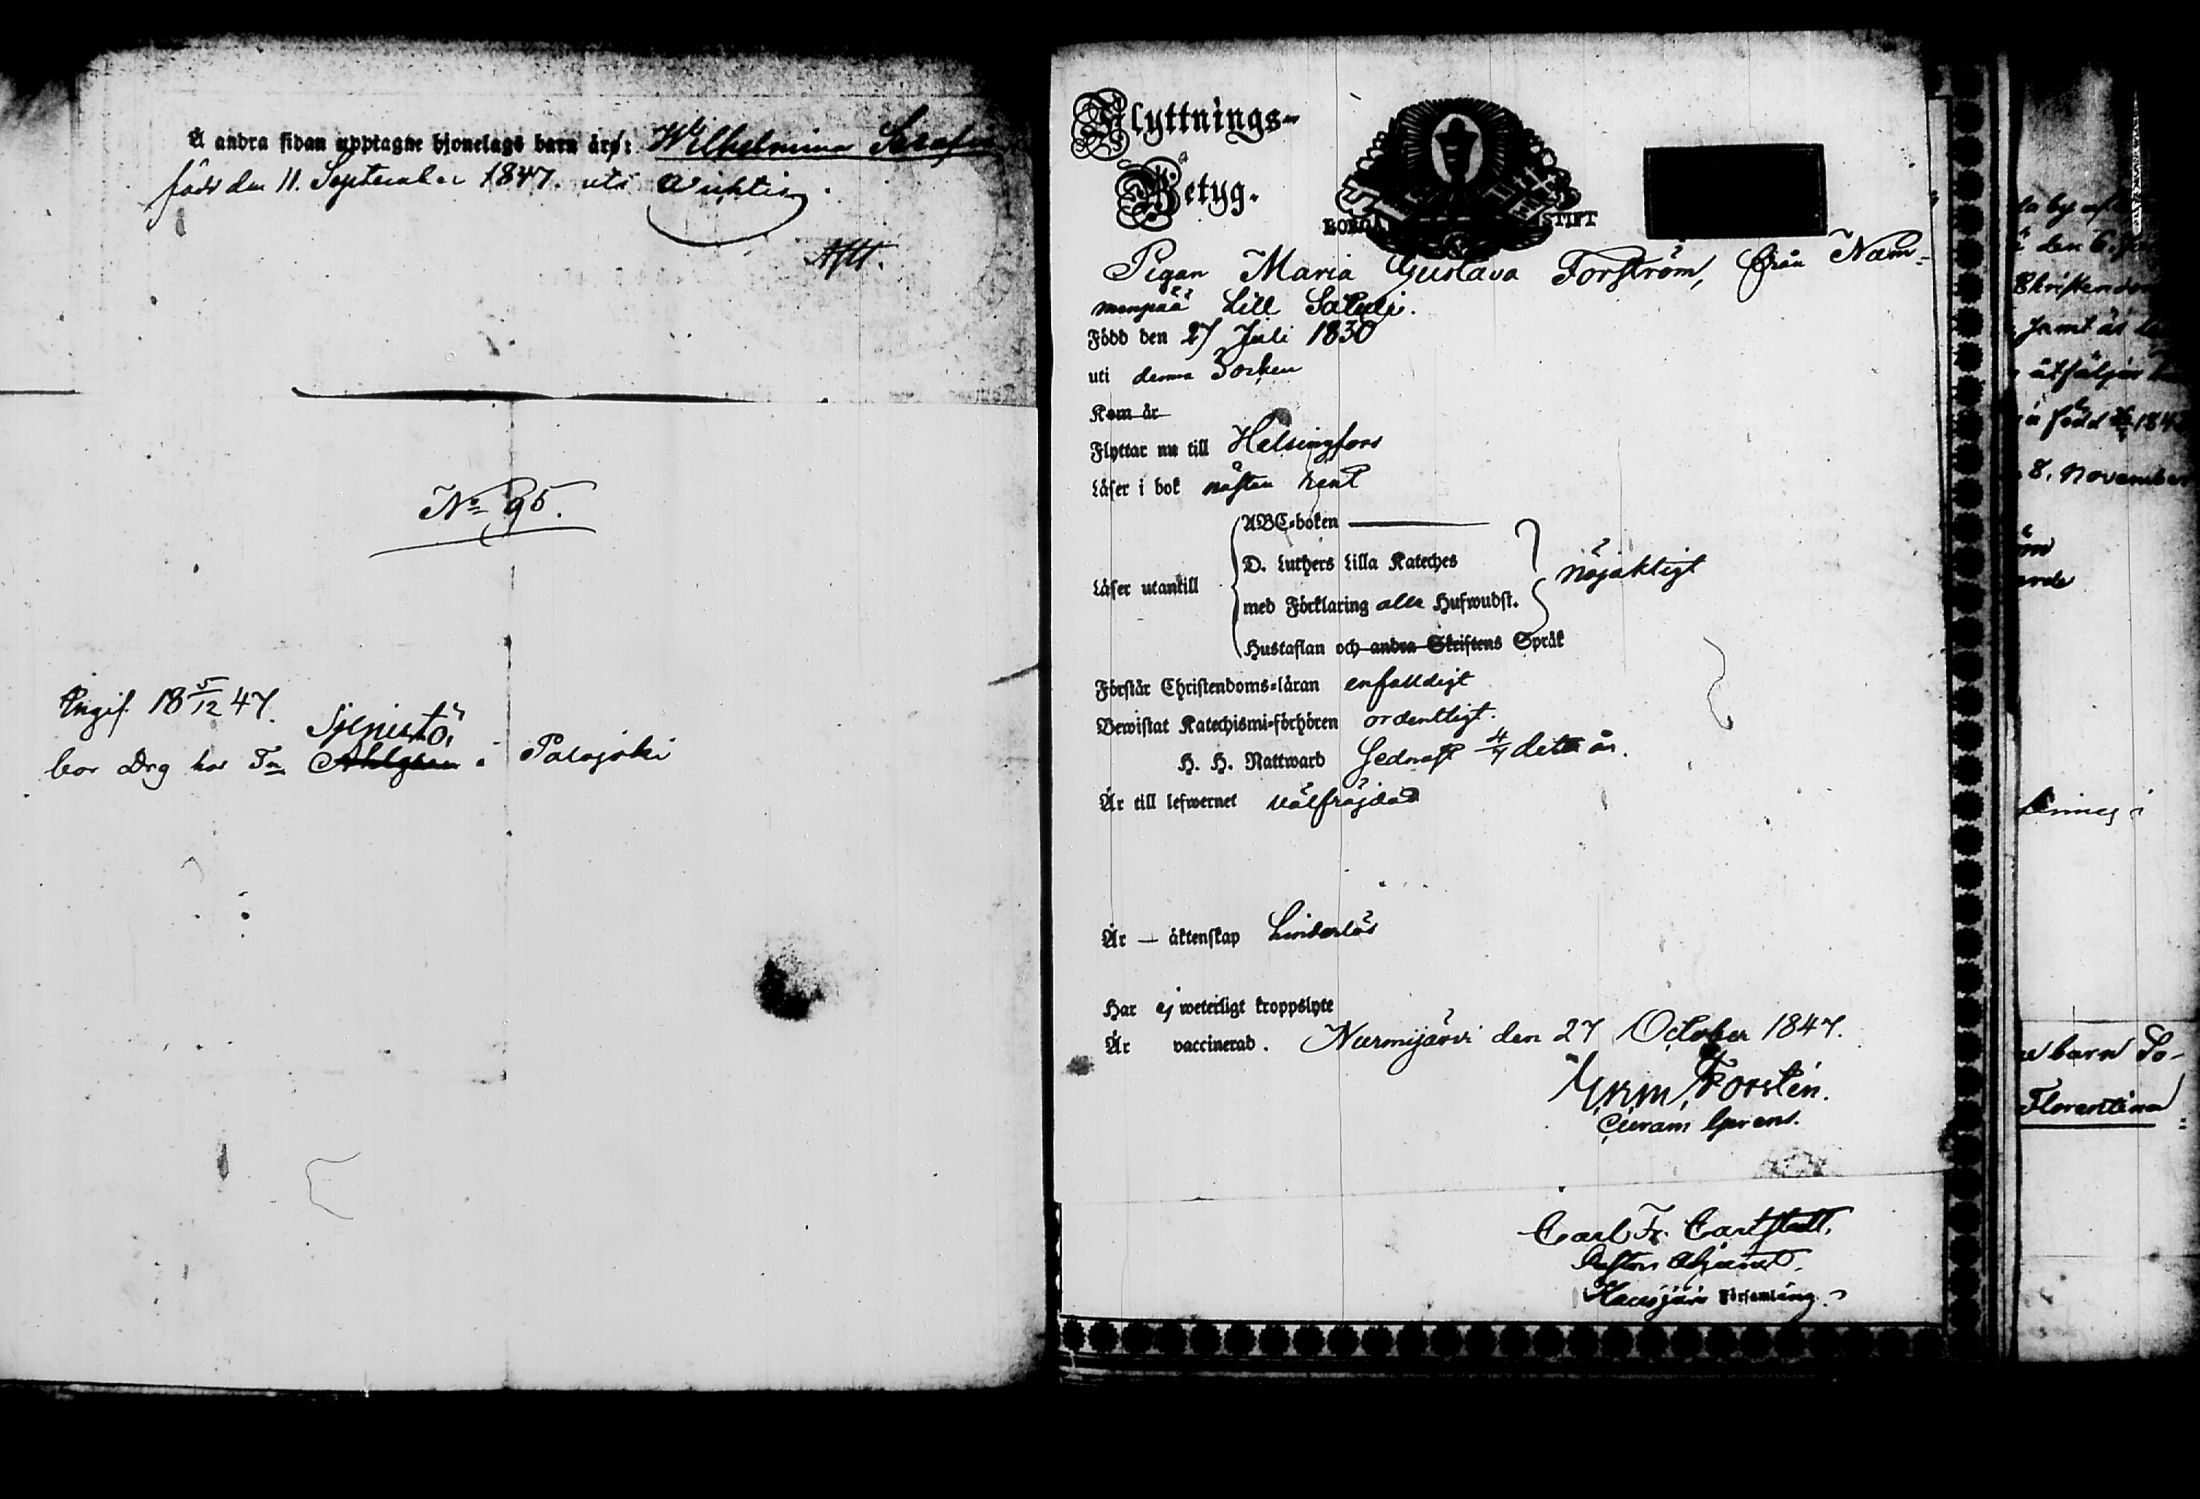 Å andra sidan upptagne hjonelags barn är: Wilhelmina Serafia
född den 11. September 1847. uti Wichtis.
No 95.
Ingif. 18 5/12 47.
Sjepistö,
bor Drg hos Fn Ahlgren i Palojoki
Flyttnings-
Betyg.
BORGÅ STIFT
Pigan Maria Gustava Forström, från Num-
menpää Lill Salpis.
Född den 27 Juli 1830
uti denna Socken
Kom år
Flyttar nu till Helsingfors
Läser i bok nästan rent
ABC-boken
D. Luthers Lilla Kateches
Läser utantill
nöjaktigt
med Förklaring alla Hufwudst.
Hustaflan och andra Skriftens Språk
Förstår Christendoms-läran enfaldigt
Bewistat Katechismi-förhören ordentligt.
H. H. Nattward sednast 4/7 detta år.
Är till lefwernet välfrägdad
Är — äktenskap hinderlös
Har ej weterligt kroppslyte
Är vaccinerad. Nurmijärvi den 27 October 1847.
Forstén.
Curam gerens.
Carl Fr. Carlstedt,
Pastors Adjunct.
Hausjärvi Församling.
la by
den 6.
Christendom
samt är
åtföljer
född 1847
8. November
finnes i
barn So-
Florentina